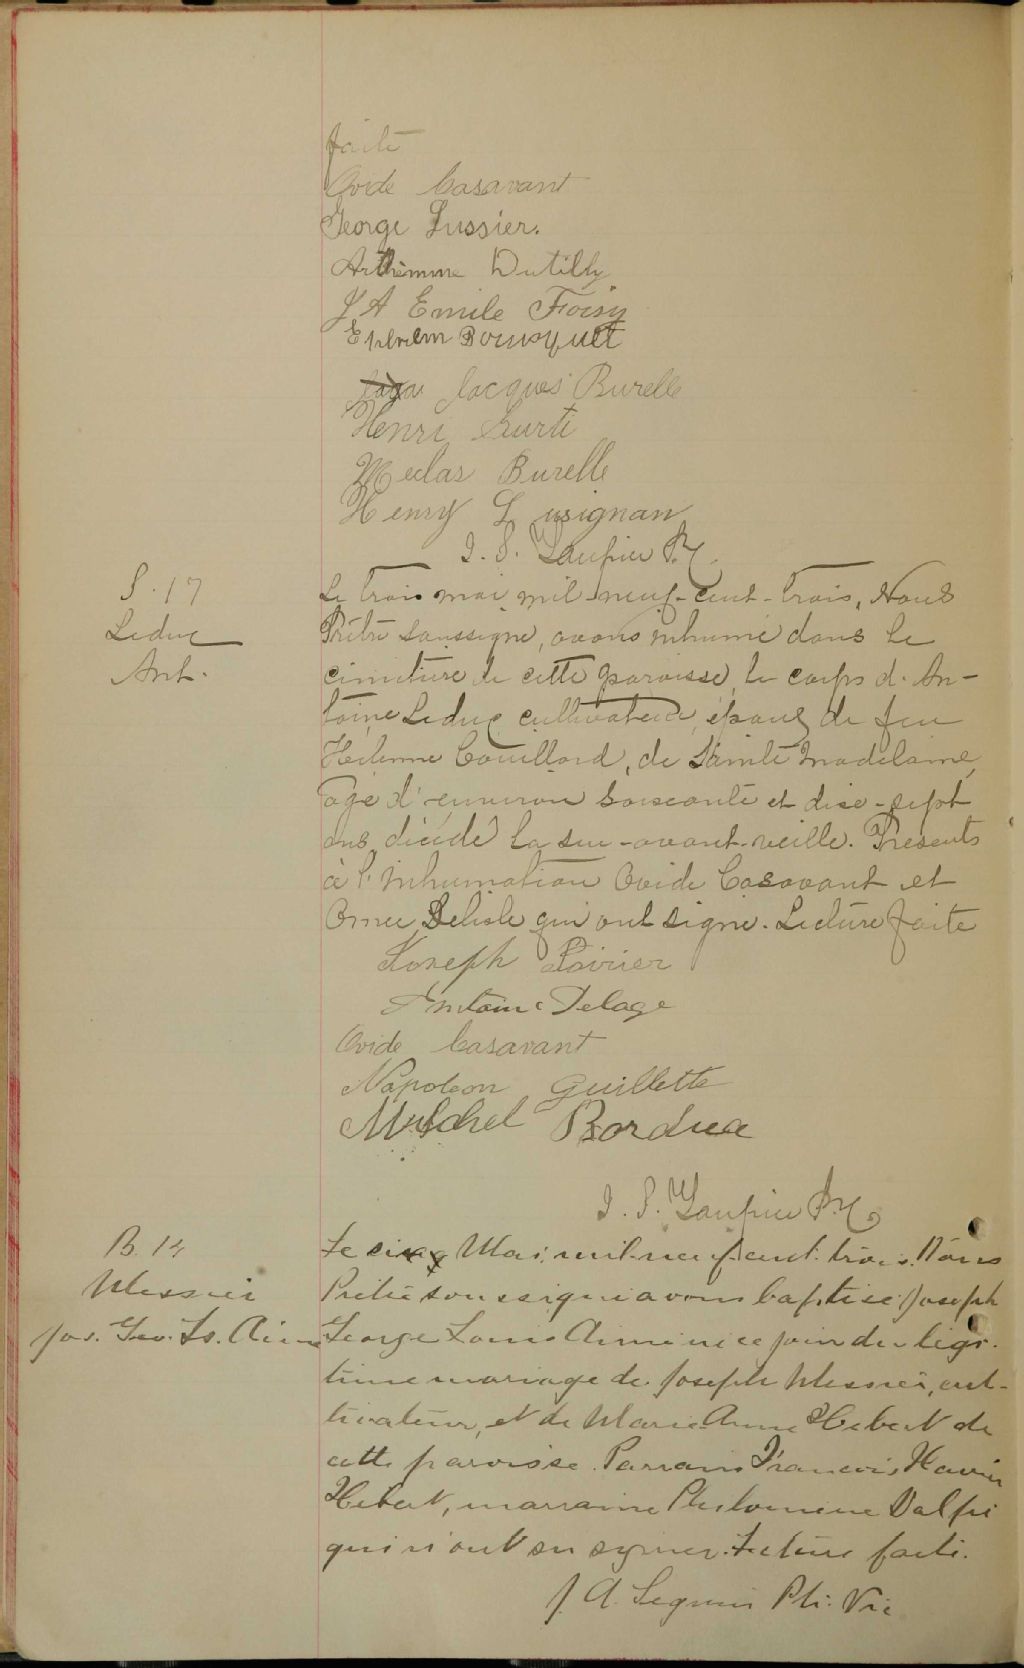 faite
Ovide Casavant
George Lussier.
Arthémme Dutilly
J A Emile Foisy
Ephrem Bousquet
Jacques Burelle
Henri Kurti
Meclas Burelle
Henry Lusignan
J. S. Taupier Ptre
S. 17
Leduc
Ant.
Le trois mai mil-neuf-cent-trois, Nous
Prêtre soussigné, avons inhumé dans le
cimetière de cette paroisse, le corps d'An-
toine Leduc cultivateur, époux de feu
Couillard, de Sainte Madelaine,
agé d'environ soixante et dix-sept
ans décédé la sur-avant-veille. Présents
à l'inhumation Ovide Casavant et
Omer Delisle qui ont signé. Lecture faite
Joseph Poirier
Antoine Delage
Ovide Casavant
Napoleon Guillette
Mitchel Bordua
J. S. Taupier Ptre
B. 14
Messier
Jos. Geo. Ls. Aimé
Le cinq Mai, mil-neuf-cent-trois, Nous
Prêtre soussigné avons baptisé Joseph
George Louis Aimé né ce jour du légi-
time mariage de Joseph Messier, cul-
tivateur, et de Marie Anne Hebert de
cette paroisse. Parrain François Xavier
Hebert, marraine Philomene Dalpé
qui n'ont su signer. Lecture faite.
J. A. Seguin Ptr. Vic